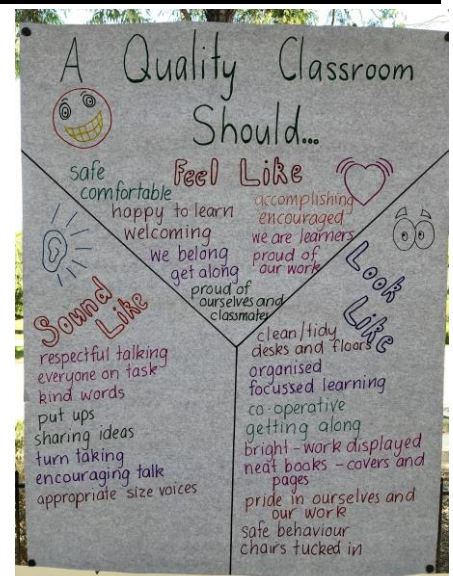 A Quality Classroom
Should...
Feel Like
safe
comfortable
happy to learn
welcoming
we belong
get along
proud of
ourselves and
classmates
accomplishing
encouraged
we are learners
proud of
our work
Sound
Like
respectful talking
everyone on task
kind words
put ups
sharing ideas
turn taking
encouraging talk
appropriate size voices
Look
Like
clean/tidy
desks and floors
organised
focussed learning
co-operative
getting along
bright - work displayed
neat books - covers and
pages
pride in ourselves and
our work
safe behaviour
chairs tucked in